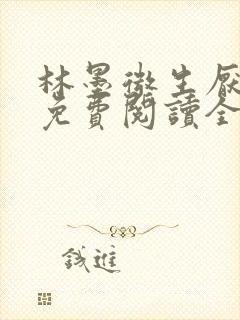 林墨徵生厭
免費閱讀全
錢進